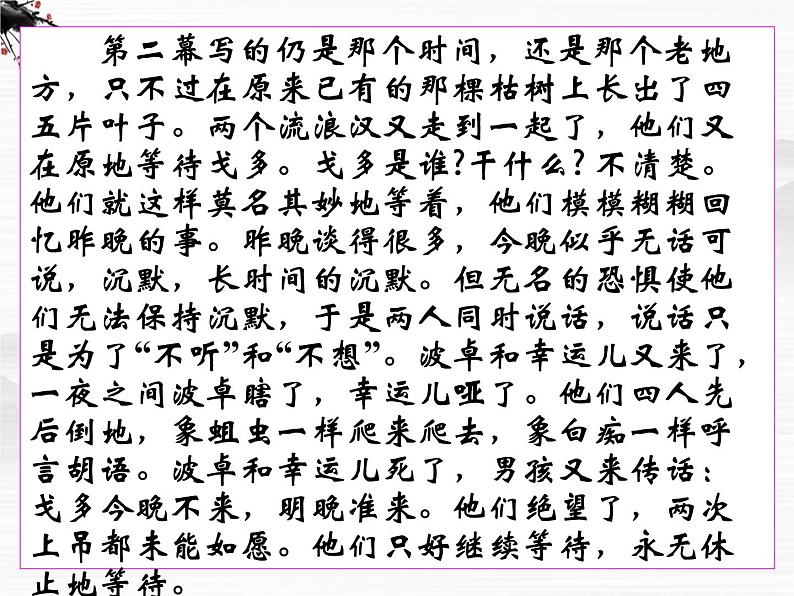 第二幕写的仍是那个时间，还是那个老地
方，只不过在原来已有的那棵枯树上长出了四
五片叶子。两个流浪汉又走到一起了，他们又
在原地等待戈多。戈多是谁?干什么? 不清楚。
他们就这样莫名其妙地等着，他们模模糊糊回
忆昨晚的事。昨晚谈得很多，今晚似乎无话可
说，沉默，长时间的沉默。但无名的恐惧使他
们无法保持沉默，于是两人同时说话，说话只
是为了“不听”和“不想”。波卓和幸运儿又来了，
一夜之间波卓瞎了，幸运儿哑了。他们四人先
后倒地，象蛆虫一样爬来爬去，象白痴一样呼
言胡语。波卓和幸运儿死了，男孩又来传话：
戈多今晚不来，明晚准来。他们绝望了，两次
上吊都未能如愿。他们只好继续等待，永无休
止地等待。